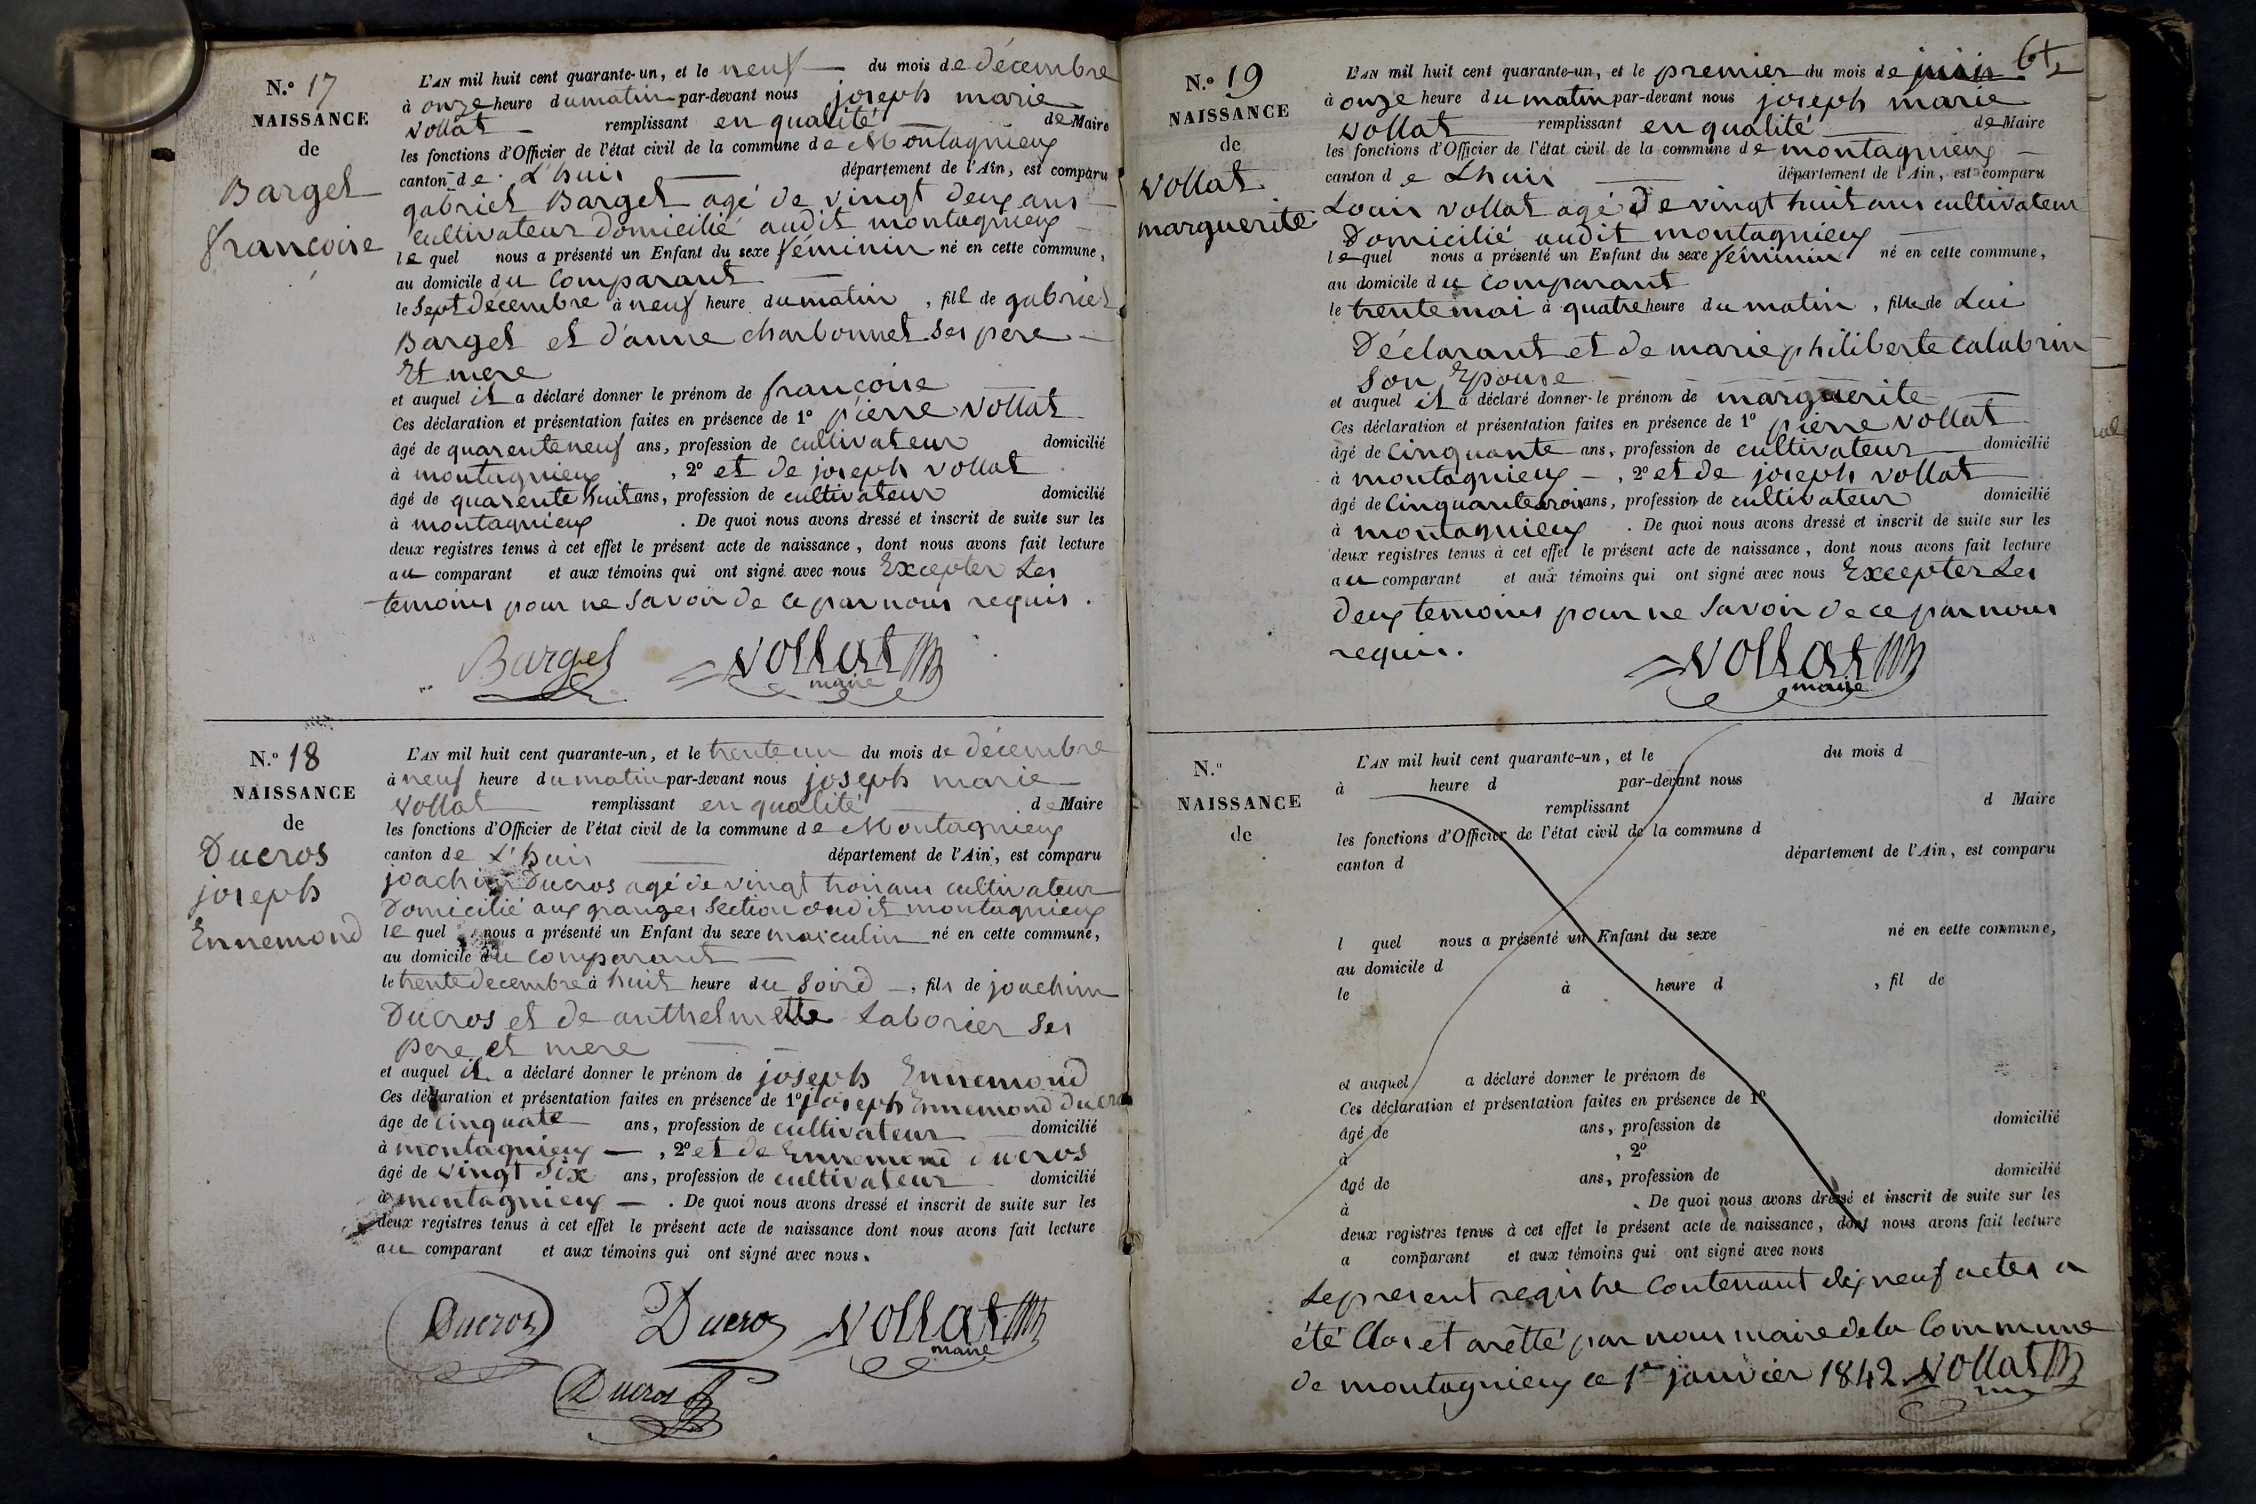 N.o 17
NAISSANCE
de
Barget
françoise
L'AN mil huit cent quarante-un, et le neuf du mois de décembre
à onze heure du matin par-devant nous joseph marie
vollat remplissant en qualité de Maire
les fonctions d'Officier de l'état civil de la commune de Montagnieux
canton de L'huis département de l'Ain, est comparu
gabriel Barget agé de vingt deux ans
cultivateur domicilié audit montagnieux
le quel nous a présenté un Enfant du sexe féminin né en cette commune,
au domicile du comparant
le sept decembre à neuf heure du matin, fill de gabriel
Barget et d'anne charbonnet ses pere
Et mere
et auquel il a déclaré donner le prénom de françoise
Ces déclaration et présentation faites en présence de 1o pierre vollat
âgé de quarente neuf ans, profession de cultivateur domicilié
à montagnieux, 2o et de joseph vollat
âgé de quarente huit ans, profession de cultivateur domicilié
à montagnieux. De quoi nous avons dressé et inscrit de suite sur les
deux registres tenus à cet effet le présent acte de naissance, dont nous avons fait lecture
au comparant et aux témoins qui ont signé avec nous Excepter Les
temoins pour ne savoir de ce par nous requis.
Barget vollat
maire
N.o 18
NAISSANCE
de
Ducros
joseph
Ennemond
L'AN mil huit cent quarante-un, et le trente un du mois de décembre
à neuf heure du matin par-devant nous joseph marie
vollat remplissant en qualité de Maire
les fonctions d'Officier de l'état civil de la commune de Montagnieux
canton de L'huis département de l'Ain, est comparu
joachim Ducros agé de vingt trois ans cultivateur
Domicilié aux granges section dudit montagnieux
le quel nous a présenté un Enfant du sexe masculin né en cette commune,
au domicile du comparant
le trente decembre à huit heure du soird, fils de joachim
Ducros et de anthelmette Laborier ses
pere et mere
et auquel il a déclaré donner le prénom de joseph Ennemond
Ces déclaration et présentation faites en présence de 1o joseph Ennemond Ducros
âge de cinquate ans, profession de cultivateur domicilié
à montagnieux, 2o et de Ennemond ducros
âgé de vingt six ans, profession de cultivateur domicilié
à montagnieux. De quoi nous avons dressé et inscrit de suite sur les
deux registres tenus à cet effet le présent acte de naissance dont nous avons fait lecture
au comparant et aux témoins qui ont signé avec nous.
Ducros Ducros vollat
maire
Ducros
N.o 19
NAISSANCE
de
vollat
marguerite
L'AN mil huit cent quarante-un, et le premier du mois de juin
à onze heure du matin par-devant nous joseph marie
vollat remplissant en qualité de Maire
les fonctions d'Officier de l'état civil de la commune de montagnieux
canton de Lhuis département de l'Ain, est comparu
Louis vollat agé de vingt huit ans cultivateur
Domicilié audit montagnieux
le quel nous a présenté un Enfant du sexe féminin né en cette commune,
au domicile du comparant
le trente mai à quatre heure du matin, fille de Lui
Déclarant et de marie philiberte calabrin
son Epouse
et auquel il a déclaré donner le prénom de marguerite
Ces déclaration et présentation faites en présence de 1o pierre vollat
âgé de cinquante ans, profession de cultivateur domicilié
à montagnieux, 2o et de joseph vollat
âgé de cinquante trois ans, profession de cultivateur domicilié
à montagnieux. De quoi nous avons dressé et inscrit de suite sur les
deux registres tenus à cet effet le présent acte de naissance, dont nous avons fait lecture
au comparant et aux témoins qui ont signé avec nous Excepter Les
deux temoins pour ne savoir de ce par nous
requis.
vollat
maire
N.o
NAISSANCE
de
L'AN mil huit cent quarante-un, et le du mois d
à heure d par-devant nous
remplissant d Maire
les fonctions d'Officier de l'état civil de la commune d
canton d département de l'Ain, est comparu
l quel nous a présenté un Enfant du sexe né en cette commune,
au domicile d
le à heure d, fil de
et auquel a déclaré donner le prénom de
Ces déclaration et présentation faites en présence de 1o
âgé de ans, profession de domicilié
à, 2o
âgé de ans, profession de domicilié
à. De quoi nous avons dressé et inscrit de suite sur les
deux registres tenus à cet effet le présent acte de naissance, dont nous avons fait lecture
a comparant et aux témoins qui ont signé avec nous
Le present registre contenant dix neuf actes a
été Clos et arêtté par nous maire de la Commune
de montagnieux ce 1er janvier 1842 vollat